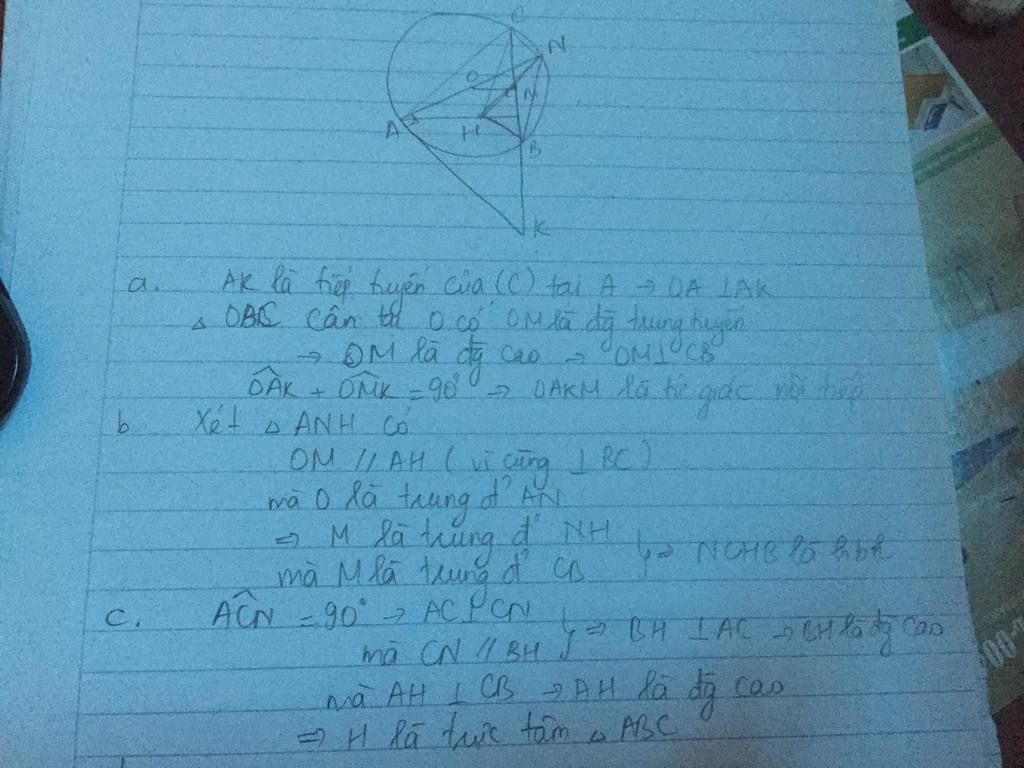 C
N
O
M
A
H
B
K
a. AK là tiếp tuyến của (C) tại A → OA ⊥ AK
△ OBC cân tại O có OM là đg trung tuyến
→ OM là đg cao → OM ⊥ CB
OÂK + OM̂K = 90° → OAKM là tứ giác nội tiếp
b Xét △ ANH có
OM // AH ( vì cùng ⊥ BC)
mà O là trung đ' AN
⇒ M là trung đ' NH
mà M là trung đ' CB } ⇒ NCHB là hbh
c. AĈN = 90° → AC ⊥ CN
mà CN // BH } ⇒ BH ⊥ AC → BH là đg cao
mà AH ⊥ CB → AH là đg cao
⇒ H là trực tâm △ ABC